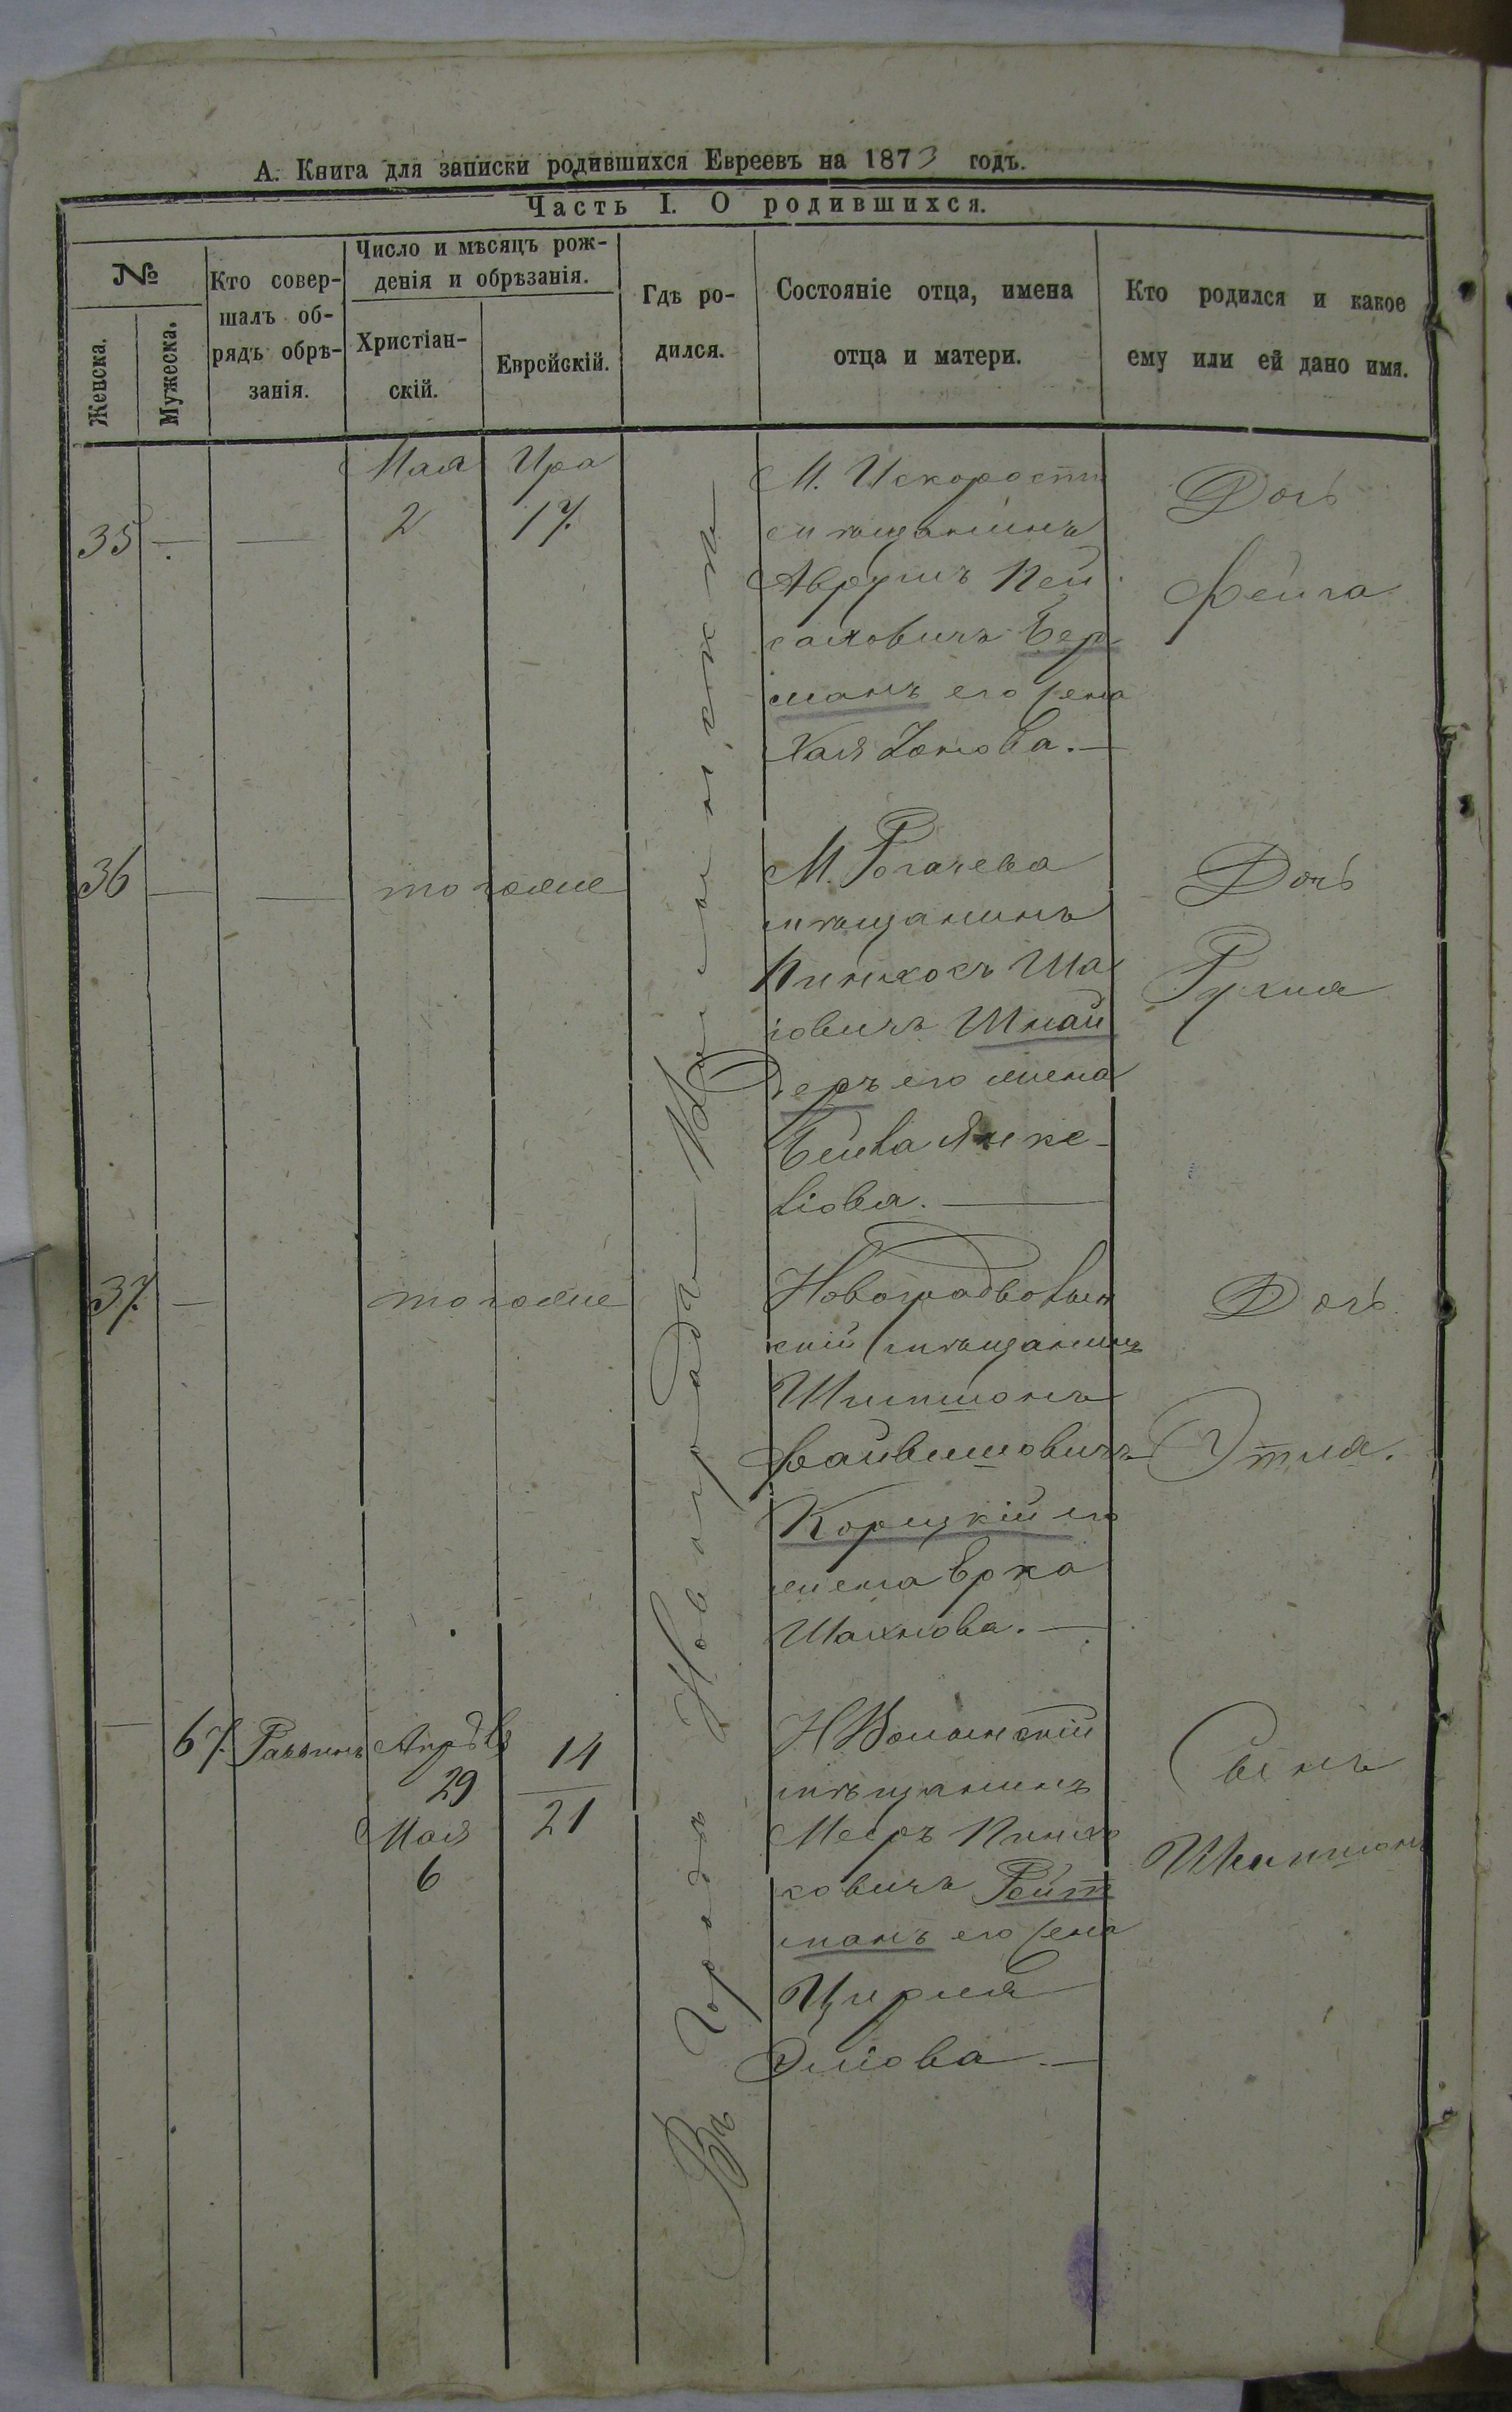 А. Книга для записки родившихся Евреевъ на 1873 годъ.
Часть I. О родившихся.
№
Женска.
Мужеска.
Кто совер-
шалъ об-
рядъ обрѣ-
занія.
Число и мѣсяцъ рож-
денія и обрѣзанія.
Христіан-
скій.
Еврейскій.
Гдѣ ро-
дился.
Состояніе отца, имена
отца и матери.
Кто родился и какое
ему или ей дано имя.
Въ Городѣ Новоградъ
35 — —
Мая
2
Ира
17.
М. Искорости
мѣщанинъ
Аврумъ Пей
саховичъ Бер
манъ его жена
Хая
Дочь
Фейга
36 — —
тогоже
М. Рогачева
мѣщанинъ
Пинхосъ Ша
іовичъ Шнай
деръ его жена
Бейла Янке-
ліова. —
Дочь
Рухля
37. —
тогоже
Новоградволын
скій мѣщанинъ
Шимшонъ
Файвишовичъ
Корицкій его
жена
Шахнова. —
Дочь
Этля.
— 67. Раввинъ
Апрѣль
29
Мая
6
14
21
НВолынскій
мѣщанинъ
Мееръ Пинхо
совичъ Ройт
манъ его жена
Цирля
Эліова —
Сынъ
Шимшонъ